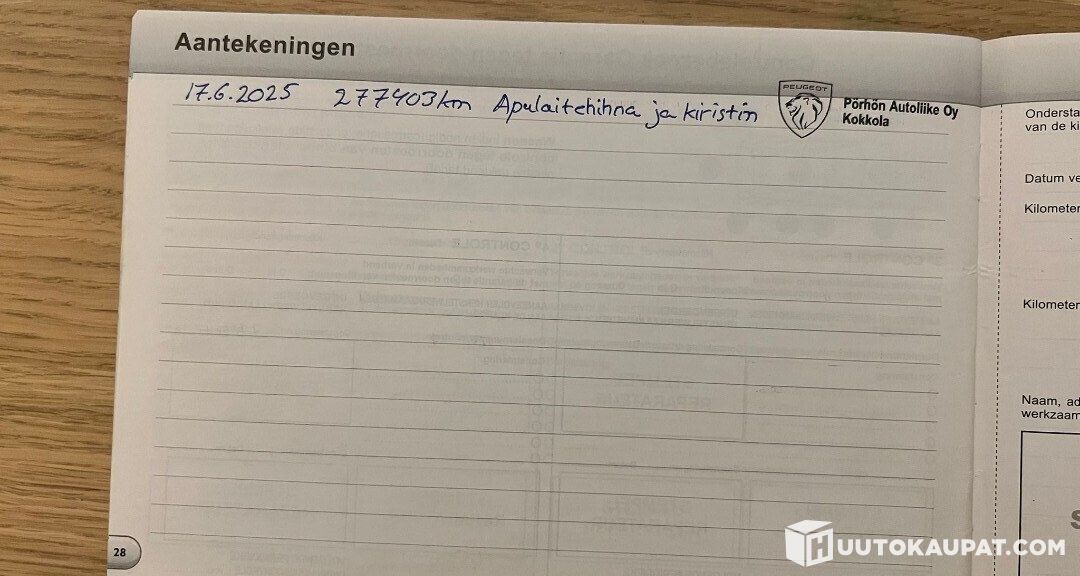 Aantekeningen
17.6.2025 277403km Apulaitehihna ja kiristin
PEUGEOT
Pörhön Autoliike Oy
Kokkola
Ondersta
van de ki
Datum ve
Kilometer
Kilometer
Naam, ad
werkzaam
S
28
HUUTOKAUPAT.COM